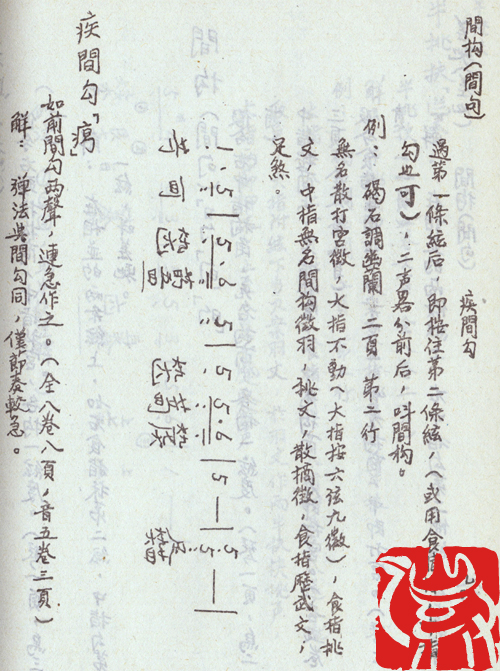 間构（間句）
疾間勾
過第一條絃后，即按住第二條絃，（或用食
勾也可），二声畧分前后，叫間构。
例：碣石調幽蘭 二頁 第二行
無名散打宮徵（大指不動（大指按六弦九徽），食指挑
文，中指無名間构徵羽，挑文，散摘徵，食指歷武文，
足煞。
5 | 5 · 6 5 | 5 · 5 · 6 | 5 — | 5 — |
疾間勾「
如前間勾两聲，連急作之。（全八卷八頁，音五卷三頁）
解：彈法與間勾同，僅節奏較急。